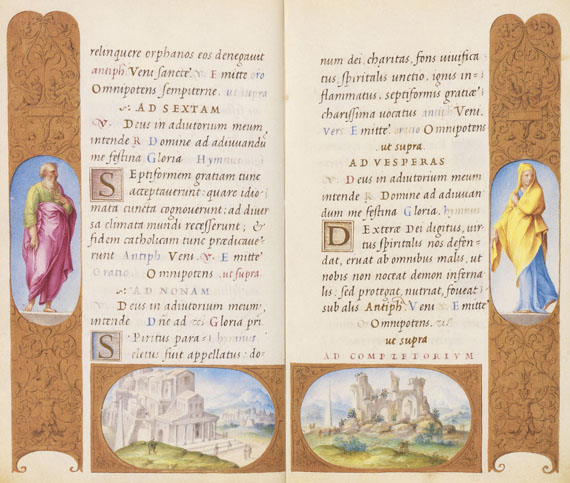 relinquere orphanos eos denegavit
antiph Veni sancte. V. Emitte oro
Omnipotens sempiterne, ut supra
AD SEXTAM
V. Deus in adiutorium meum
intende R Domine ad adiuvandū
me festina Gloria Hymnus
Septiformem gratiam tunc
acceptaverunt: quare idio-
mata cuncta cognoverunt: ad diver
sa climata mundi recesserunt, &
fidem catholicam tunc prædicave-
runt Antiph Veni. V. Emitte
Oratio. Omnipotens. ut supra.
AD NONAM
V. Deus in adiutorium meum,
intende Dñe ad Gloria pri
Spiritus para= hymnus
cletus fuit appellatus: do-
num dei, charitas, fons vivifica
tus spiritalis unctio, ignis in=
flammatus, septiformis gratiæ
charissima vocatus antiph Veni.
Vers Emitte oratio Omnipotens
ut supra.
AD VESPERAS
V. Deus in adiutorium meum
intende R. Domine ad adiuvan
dum me festina Gloria. hymnus
Dexteræ Dei digitus, vir
tus spiritalis nos defen=
dat, eruat ab omnibus malis, ut
nobis non noceat demon inferna
lis, sed protegat, nutriat, foveat
sub alis Antiph. Veni V Emitte
Omnipotens.
ut supra
AD COMPLETORIVM